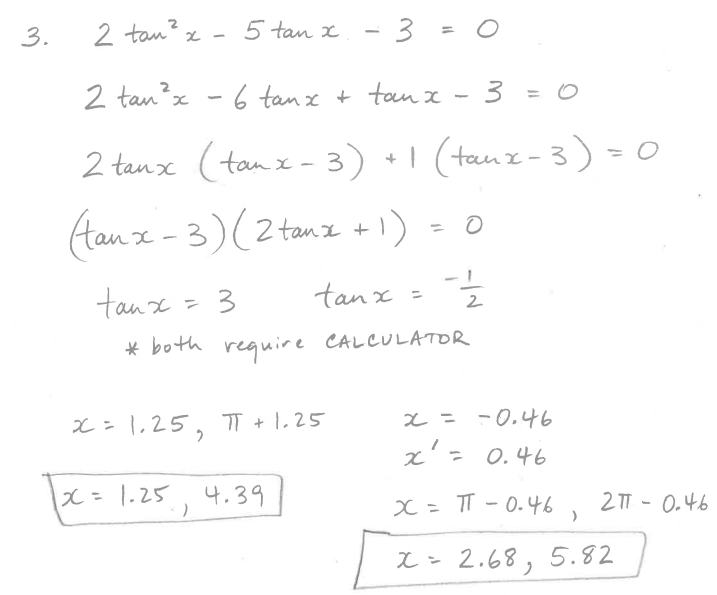 3. 2 tan² x - 5 tan x - 3 = 0
2 tan² x - 6 tan x + tan x - 3 = 0
2 tan x (tan x - 3) + 1 (tan x - 3) = 0
(tan x - 3)(2 tan x + 1) = 0
tan x = 3 tan x = -1/2
* both require CALCULATOR
x = 1.25, π + 1.25
x = 1.25, 4.39
x = -0.46
x' = 0.46
x = π - 0.46, 2π - 0.46
x = 2.68, 5.82